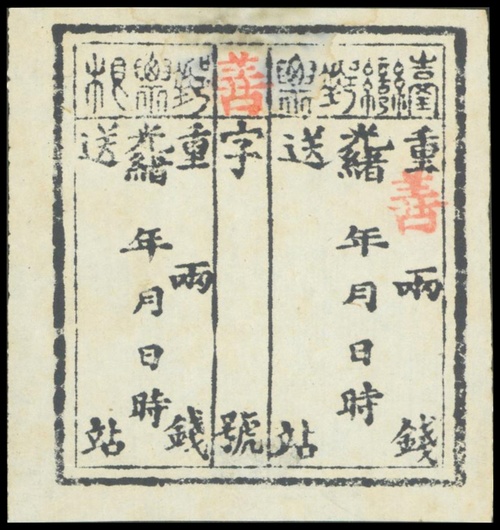 臺灣郵票
重兩錢
善
光緒年月日時
送站
善
字號
郵票根
重兩錢
光緒年月日時
送站